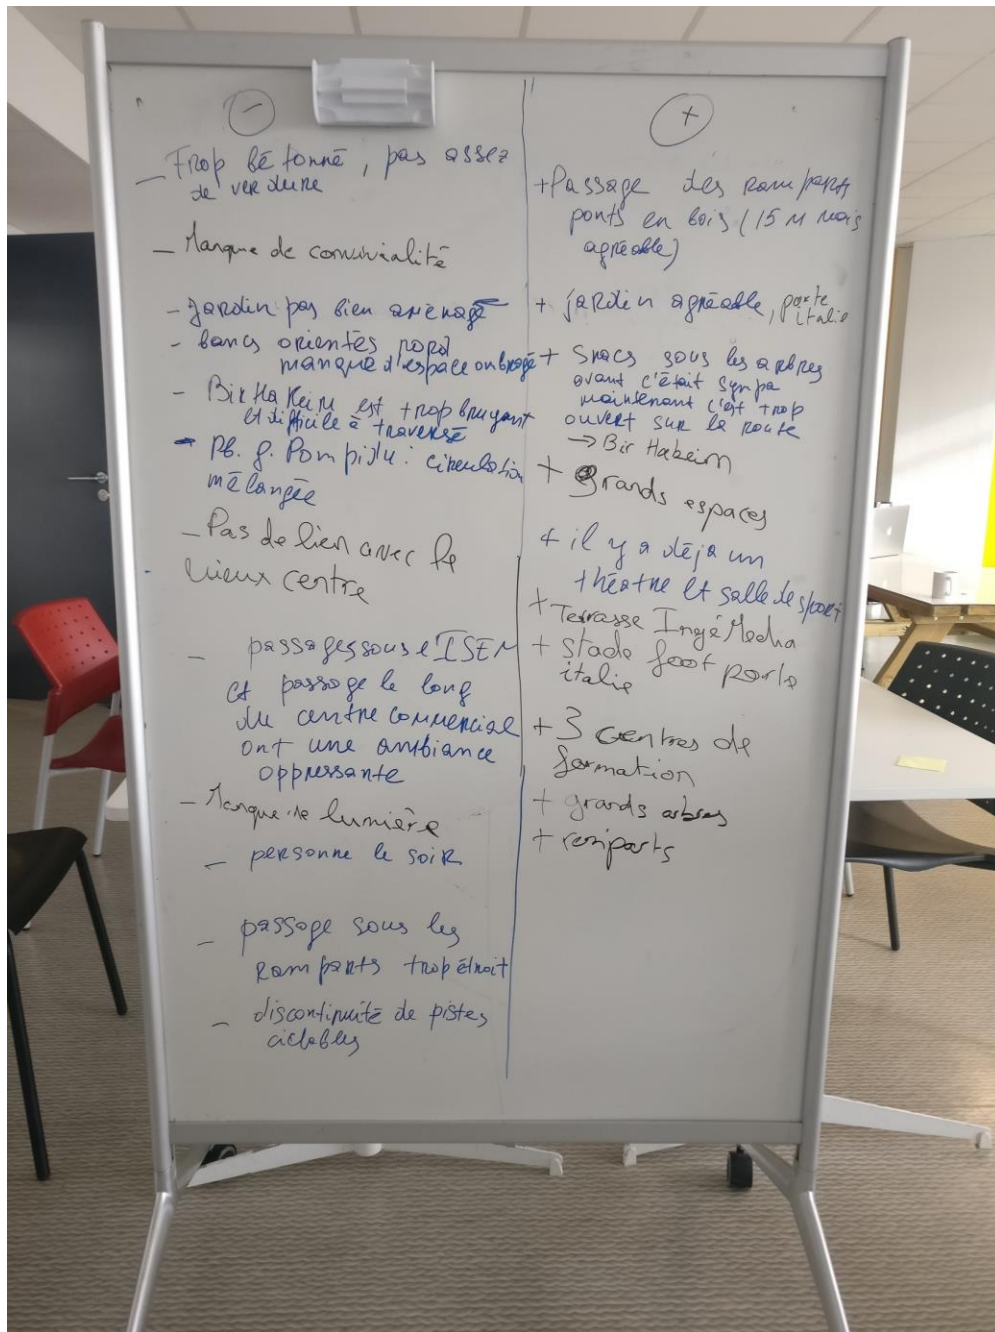 -
_ Trop bétonné, pas assez
de verdure
_ Manque de convivialité
- Jardin pas bien aménagé
- bancs orientés nord
manque d'espace ombragé
- Bir Hakeim est trop bruyant
et difficile à traversé
- Pb. g. Pompidu : circulation
mélangée
_ Pas de lien avec le
vieux centre
_ passages sous l'ISEM
et passage le long
du centre commercial
ont une ambiance
oppressante
_ Manque de lumière
_ personne le soir
_ passage sous les
ramparts trop étroit
_ discontinuité de pistes
ciclables
+
+ Passage des ramparts
ponts en bois (15 M mais
agréable)
+ jardin agréable, porte
italie
+ Snacs sous les arbres
avant c'était sympa
maintenant c'est trop
ouvert sur la route
→ Bir Hakeim
+ grands espaces
+ il y a déja un
théatre et salle de sport
+ Terrasse IngéMedia
+ stade foot porte
italie
+ 3 centres de
formation
+ grands arbres
+ remparts